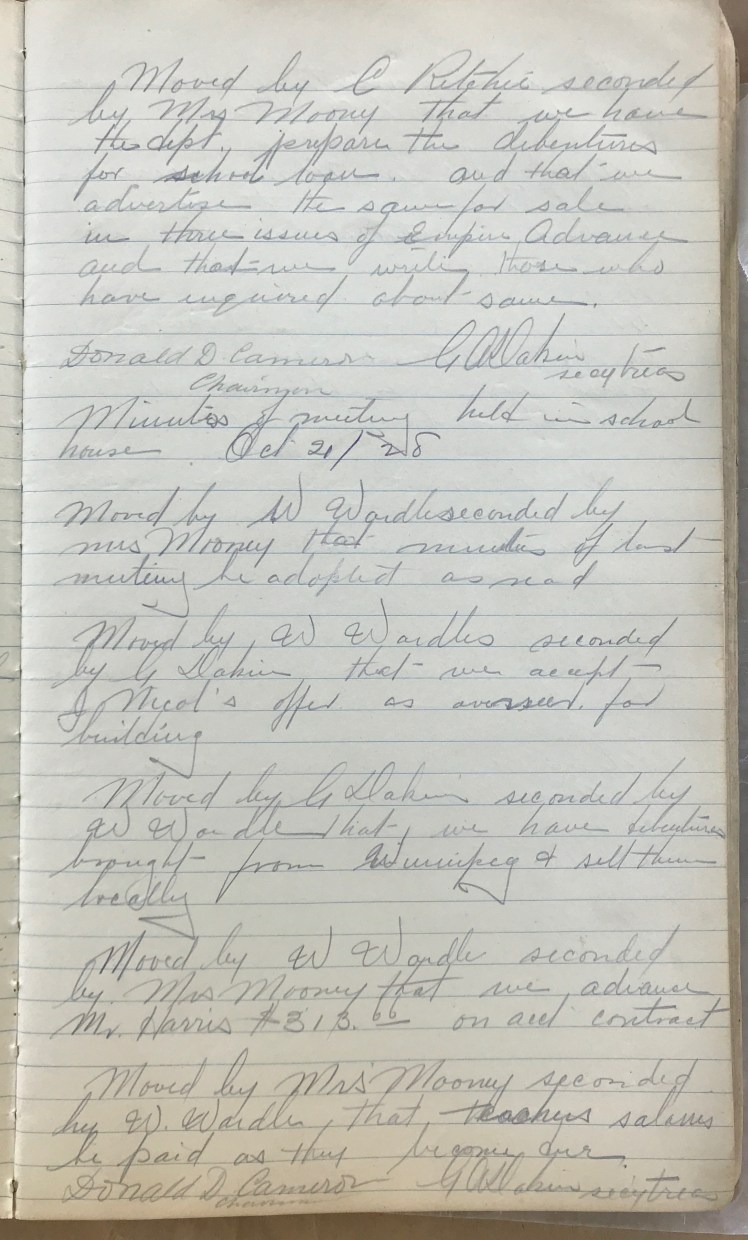 Moved by C Ritchie seconded
by Mrs Moony that we have
the dept., prepare the debentures
for school loan. and that we
advertise the same for sale
in three issues of Empire Advance
and that we write those who
have inquired about same.
Donald D. Cameron G A Dakin
Chairman secy treas
Minutes of meeting held in school
house Oct 21/28
Moved by W Wardle seconded by
Mrs Mooney that minutes of last
meeting be adopted as read
Moved by W Wardle seconded
by G Dakin that we accept
J Nicol's offer as overseer for
building
Moved by G Dakin seconded by
W Wardle that we have debentures
brought from Winnipeg & sell them
locally
Moved by W Wardle seconded
by Mrs Mooney that we advance
Mr. Harris $313.66 on acct contract
Moved by Mrs Mooney seconded
by W. Wardle, that teachers salaries
be paid as they become due.
Donald D. Cameron G A Dakin secy treas
Chairman